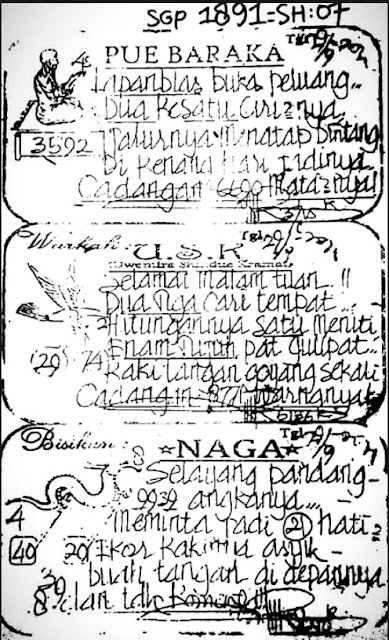 SGP 1891=SH:07
PUE BARAKA
Lapanblas buka peluang..
Dua Kesatu Ciri2nya
3592
Jalurnya Menatap Bintang
Di Kenang Hari Jadinya
Cadangan 6690 Mata2nya
Warkah:
U.S.K
Selamat malam tuan..!!
Dua Tiga Cari tempat...
Hitungannya Satu Meniti
Enam Tujuh pat Gulipat..
20 74
Kaki tangan goyang sekali
Cadangan 8771
Bisikan:
NAGA
Selayang pandang-
9939 angkanya...
4
Meminta Jadi 21 hati
40 20 Ikor Kakinya asyik
buah tangan di depannya